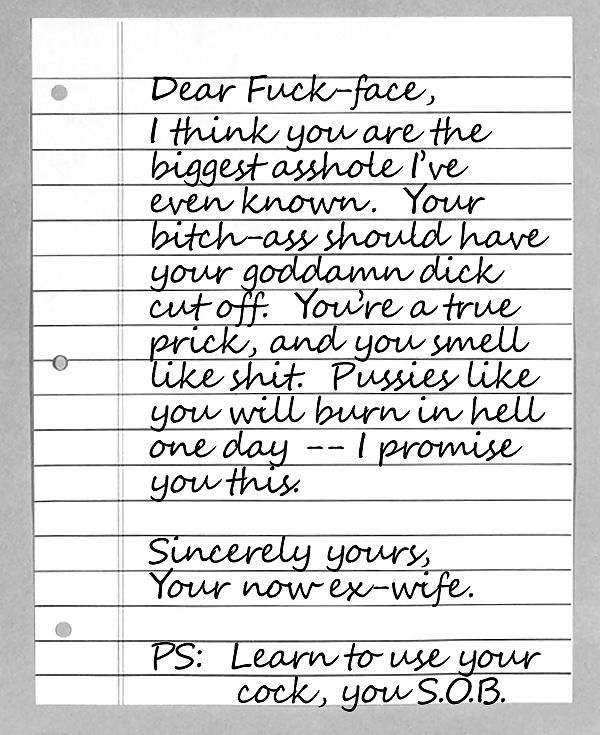 Dear Fuck-face,
I think you are the
biggest asshole I've
even known. Your
bitch-ass should have
your goddamn dick
cut off. You're a true
prick, and you smell
like shit. Pussies like
you will burn in hell
one day -- I promise
you this.
Sincerely yours,
Your now ex-wife.
PS: Learn to use your
cock, you S.O.B.